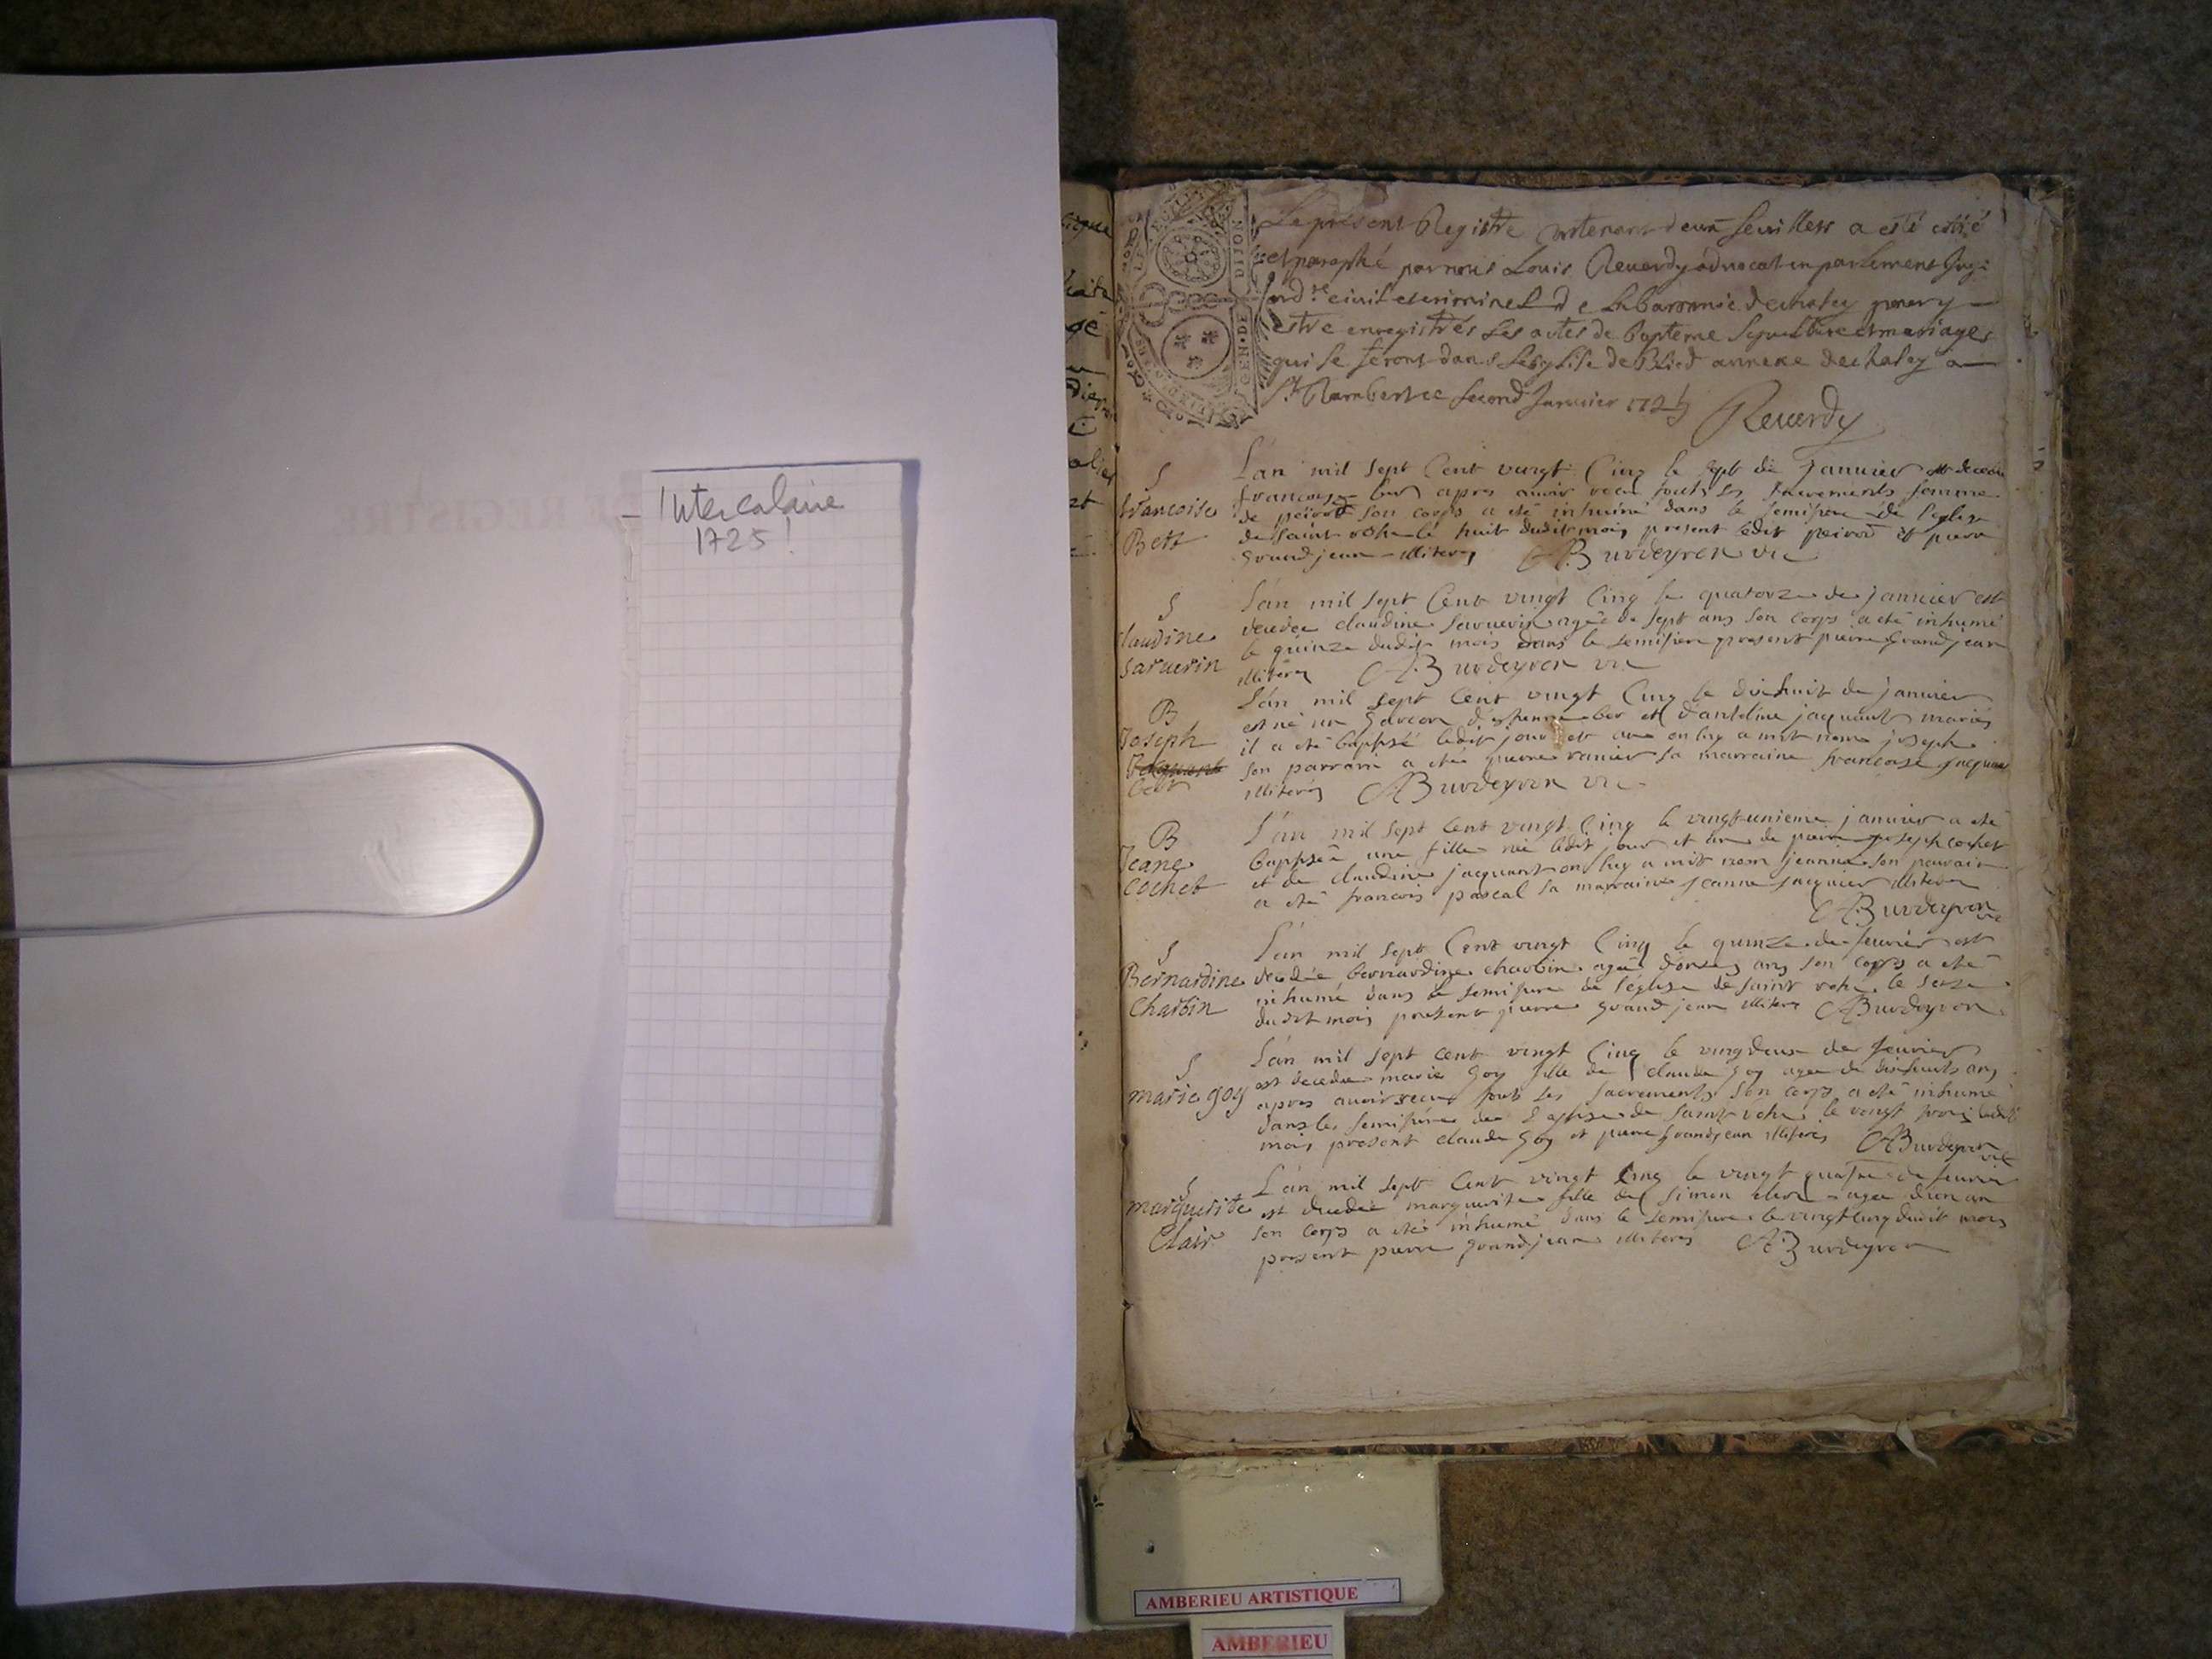 - Intercalaire
1725!
GEN. DE DIJON
Le présent Registre contenant deux feuillets a esté cotté
et paraphé par nous Louis Reverdy advocat en parlement Juge
ord.re civil et criminel de la baronnie de chasey pour y
estre enregistrés Les actes de Bapteme Sepulture et mariages
qui se feront dans L'esglise de Blied annexe de chasey a
St Rambert ce second Janvier 1725 Reverdy
S
francoise
Bert
L'an mil sept Cent vingt Cinq le sept de Janvier est decedee
francoise apres avoir receu touts les sacrements femme
de son corps a eté inhumé dans le semitiere de l'eglise
de saint le huit dudit mois present ledit et pierre
Grandjean illiteres ABurdeyron vic
S
Claudine
Savarin
L'an mil sept Cent vingt Cinq le quatorze de janvier est
decedee claudine agée de sept ans son corps a eté inhumé
le quinze dudit mois dans le semitiere present pierre Grandjean
illiteré ABurdeyron vic
B
Joseph
Jaquant
bert
L'an mil sept Cent vingt Cinq le dixhuit de janvier
est né un garcon d'estienne et d'antoine jaquant mariés
il a eté baptisé ledit jour et an on luy a mit nom joseph
son parrain a eté pierre ranier sa marraine francoise
illiterés ABurdeyron vic
B
Jeane
Cochet
L'an mil sept Cent vingt Cinq le vingt unieme janvier a eté
baptisée une fille née ledit jour et an de joseph cochet
et de claudine jaquant on luy a mit nom jeanne son parrain
a eté francois pascal sa marraine jeanne jaquier illiteres
ABurdeyron vic
S
Bernardine
Charbin
L'an mil sept Cent vingt Cinq le quinze de fevrier est
decedée bernardine charbin agée d'onze ans son corps a eté
inhumé dans le semitiere de l'eglise de saint le seze
dudit mois present pierre grandjean illiteré ABurdeyron
S
marie goy
L'an mil sept cent vingt Cinq le vingdeux de fevrier
est decedee marie Goy fille de claude Goy agee de dixhuits ans
apres avoir receu touts les sacrements son corps a eté inhumé
dans le semitiere de l'eglise de saint le vingt trois
mois present claude Goy et pierre grandjean illiterés ABurdeyron vic
S
marguerite
Clair
L'an mil sept Cent vingt Cinq le vingt quatre de fevrier
est decedée marguerite fille de simon agee d'un an
son corps a eté inhumé dans le semitiere le vingtcinq dudit mois
present pierre grandjean illiteres ABurdeyron
AMBERIEU ARTISTIQUE
AMBERIEU